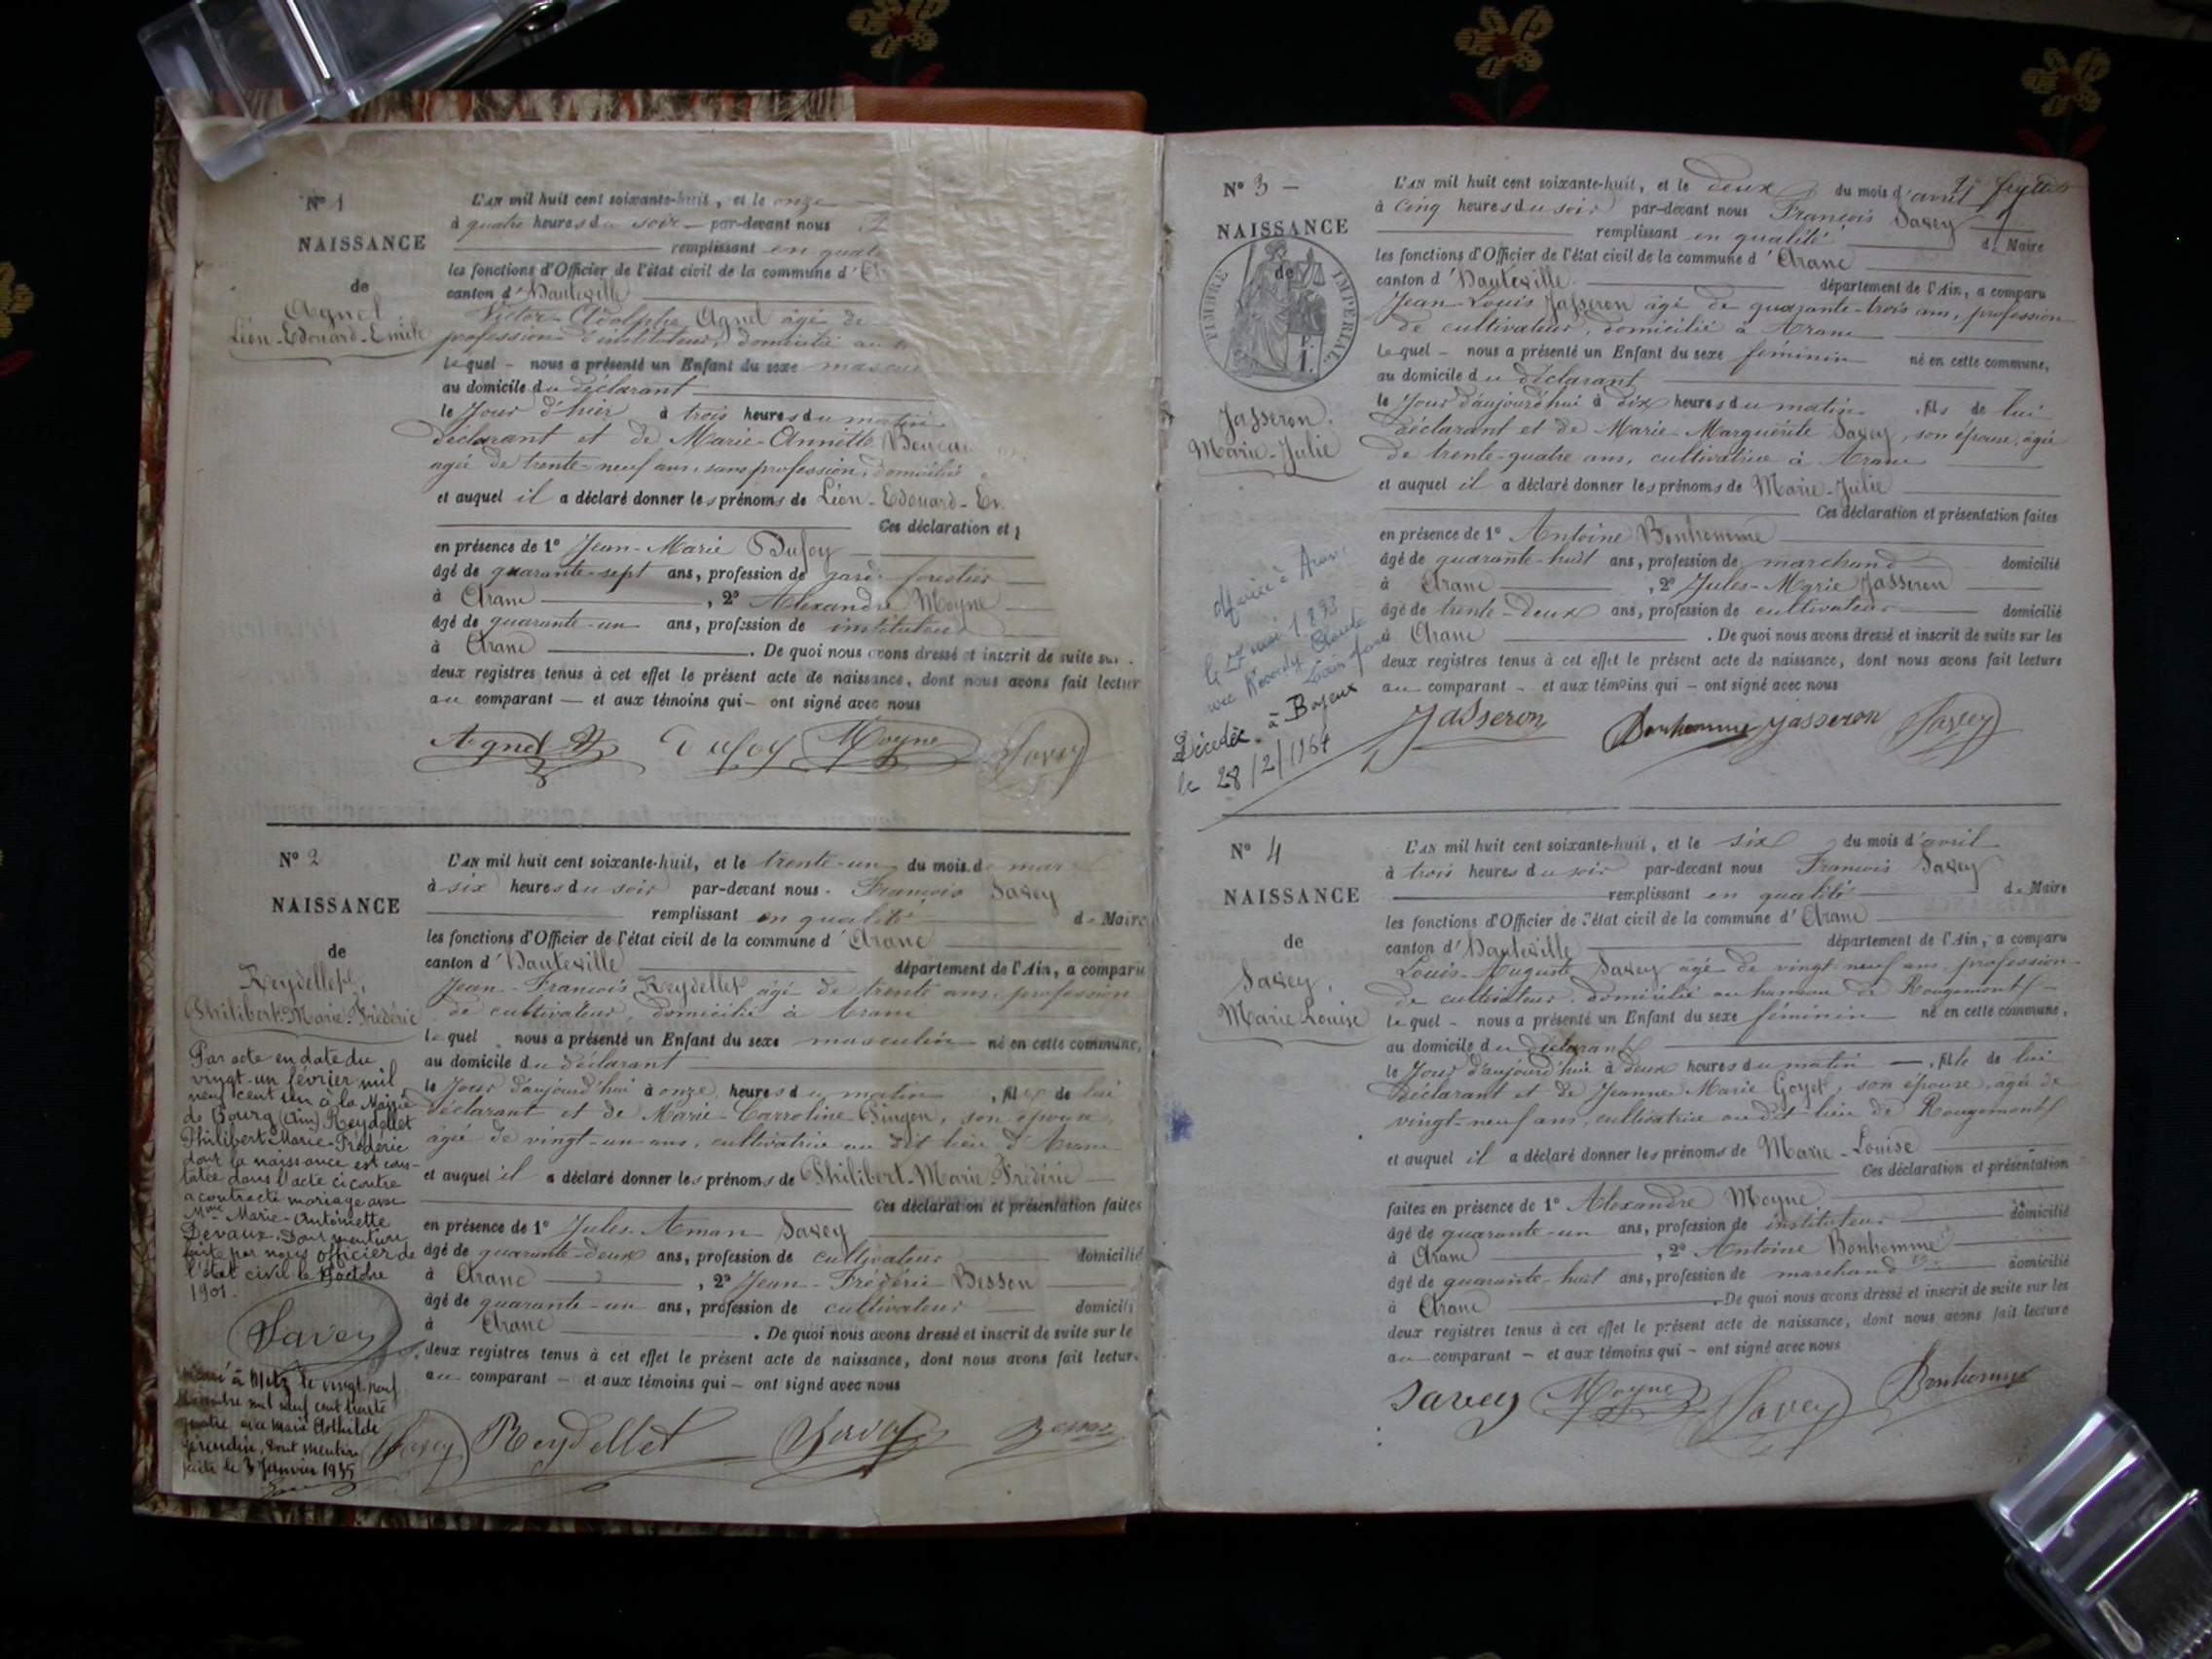 N° 1
NAISSANCE
de
Agnel
Léon-Edouard-Emile
L'AN mil huit cent soixante-huit, et le onze
à quatre heures du soir — par-devant nous
remplissant en quali
les fonctions d'Officier de l'état civil de la commune d'
canton d'Hauteville
Victor-Adolphe Agnel âgé de
profession d'instituteur, domicilié au
lequel – nous a présenté un Enfant du sexe mascu
au domicile du déclarant
le Jour d'hier à trois heures du matin
déclarant et de Marie-Annette
agée de trente-neuf ans, sans profession, domiciliée
et auquel il a déclaré donner les prénoms de Léon-Edouard-Em
Ces déclaration et
en présence de 1° Jean-Marie Dufoy
âgé de quarante-sept ans, profession de garde forestier
à Aranc , 2° Alexandre Moyne
âgé de quarante-un ans, profession de instituteur
à Aranc . De quoi nous avons dressé et inscrit de suite sur
deux registres tenus à cet effet le présent acte de naissance, dont nous avons fait lectur
au comparant — et aux témoins qui – ont signé avec nous
Agnel Dufoy Moyne Savey
N° 2
NAISSANCE
de
Reydellet,
Philibert-Marie-Frédéric
L'AN mil huit cent soixante-huit, et le trente-un du mois de mar
à six heures du soir par-devant nous François Savey
remplissant en qualité de Maire
les fonctions d'Officier de l'état civil de la commune d'Aranc
canton d'Hauteville département de l'Ain, a comparu
Jean-François Reydellet âgé de trente ans, profession
de cultivateur, domicilié à Aranc
lequel nous a présenté un Enfant du sexe masculin né en cette commune,
au domicile du déclarant
le Jour d'aujourd'hui à onze heures du matin , fils de lui
déclarant et de Marie-Carroline Pingon, son épouse,
âgée de vingt-un ans, cultivatrice au dit lieu d'Aranc
et auquel il a déclaré donner les prénoms de Philibert-Marie-Frédéric
Ces déclaration et présentation faites
en présence de 1° Jules-Aman Savey
âgé de quarante-deux ans, profession de cultivateur domicilié
à Aranc , 2° Jean-Frédéric Besson
âgé de quarante-un ans, profession de cultivateur domicili
à Aranc . De quoi nous avons dressé et inscrit de suite sur le
deux registres tenus à cet effet le présent acte de naissance, dont nous avons fait lectur
au comparant – et aux témoins qui – ont signé avec nous
Savey Reydellet Savey Besson
Par acte en date du
vingt-un février mil
neuf cent un à la Mairie
de Bourg (Ain) Reydellet
Philibert Marie-Frédéric
dont la naissance est cons-
tatée dans l'acte ci contre
a contracté mariage avec
Mme Marie-Antoinette
Devaux. Dont mention
faite par nous officier de
l'état civil le octobre
1901.
Savey
Marié à Metz le vingt-neuf
mil neuf cent trente
quatre avec Marie Clothilde
dont mention
faite le 3 Janvier 1935
N° 3 –
NAISSANCE
de
TIMBRE IMPERIAL
Jasseron.
Marie-Julie
L'AN mil huit cent soixante-huit, et le deux du mois d'avril
à cinq heures du soir par-devant nous François Savey
remplissant en qualité de Maire
les fonctions d'Officier de l'état civil de la commune d'Aranc
canton d'Hauteville département de l'Ain, a comparu
Jean-Louis Jasseron âgé de quarante-trois ans, profession
de cultivateur, domicilié à Aranc
lequel – nous a présenté un Enfant du sexe féminin né en cette commune,
au domicile du déclarant
le Jour d'aujourd'hui à dix heures du matin , fils de lui
déclarant et de Marie-Marguerite Savey, son épouse, agée
de trente-quatre ans, cultivatrice à Aranc
et auquel il a déclaré donner les prénoms de Marie-Julie
Ces déclaration et présentation faites
en présence de 1° Antoine Bonhomme
âgé de quarante-huit ans, profession de marchand domicilié
à Aranc , 2° Jules-Marie Jasseron
âgé de trente-deux ans, profession de cultivateur domicilié
à Aranc . De quoi nous avons dressé et inscrit de suite sur les
deux registres tenus à cet effet le présent acte de naissance, dont nous avons fait lecture
au comparant – et aux témoins qui – ont signé avec nous
Jasseron Bonhomme Jasseron Savey
à Aranc
le mai 1893
avec Claude
Décédée à
le 28/2/1964
N° 4
NAISSANCE
de
Savey,
Marie-Louise
L'AN mil huit cent soixante-huit, et le six du mois d'avril
à trois heures du soir par-devant nous François Savey
remplissant en qualité de Maire
les fonctions d'Officier de l'état civil de la commune d'Aranc
canton d'Hauteville département de l'Ain, a comparu
Louis-Auguste Savey âgé de vingt-neuf ans profession
de cultivateur, domicilié au hameau de Rougemont
lequel – nous a présenté un Enfant du sexe féminin né en cette commune,
au domicile du déclarant
le Jour d'aujourd'hui à deux heures du matin — , fille de lui
déclarant et de Jeanne-Marie Goyet, son épouse, âgée de
vingt-neuf ans, cultivatrice au dit lieu de Rougemont
et auquel il a déclaré donner les prénoms de Marie-Louise
Ces déclaration et présentation
faites en présence de 1° Alexandre Moyne
âgé de quarante-un ans, profession de instituteur domicilié
à Aranc , 2° Antoine Bonhomme
âgé de quarante-huit ans, profession de marchand domicilié
à Aranc . De quoi nous avons dressé et inscrit de suite sur les
deux registres tenus à cet effet le présent acte de naissance, dont nous avons fait lecture
au comparant – et aux témoins qui – ont signé avec nous
Savey Moyne Savey Bonhomme